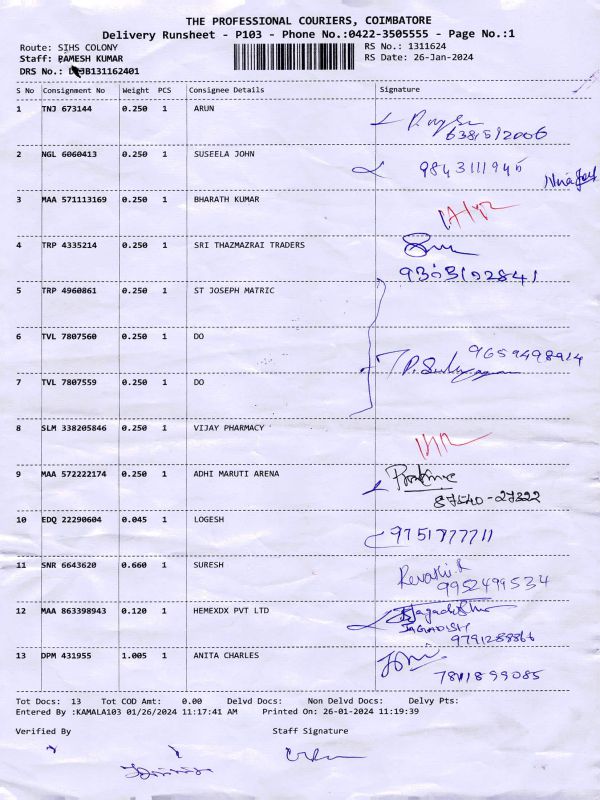 THE PROFESSIONAL COURIERS, COIMBATORE
Delivery Runsheet - P103 - Phone No.:0422-3505555 - Page No.:1
Route: SIHS COLONY RS No.: 1311624
Staff: RAMESH KUMAR RS Date: 26-Jan-2024
DRS No.:
S No Consignment No Weight PCS Consignee Details Signature
1 TNJ 673144 0.250 1 ARUN
6381512006
2 NGL 6060413 0.250 1 SUSEELA JOHN 9843111945
3 MAA 571113169 0.250 1 BHARATH KUMAR
4 TRP 4335214 0.250 1 SRI THAZMAZRAI TRADERS
9303102841
5 TRP 4960861 0.250 1 ST JOSEPH MATRIC
6 TVL 7807560 0.250 1 DO
9659498914
7 TVL 7807559 0.250 1 DO
8 SLM 338205846 0.250 1 VIJAY PHARMACY
9 MAA 572222174 0.250 1 ADHI MARUTI ARENA
87540-27322
10 EDQ 22290604 0.045 1 LOGESH 9751877711
11 SNR 6643620 0.660 1 SURESH Revathi.R
9952499534
12 MAA 863398943 0.120 1 HEMEXDX PVT LTD
JAGADISH
9791288866
13 DPM 431955 1.005 1 ANITA CHARLES
7811899085
Tot Docs: 13 Tot COD Amt: 0.00 Delvd Docs: Non Delvd Docs: Delvy Pts:
Entered By :KAMALA103 01/26/2024 11:17:41 AM Printed On: 26-01-2024 11:19:39
Verified By Staff Signature